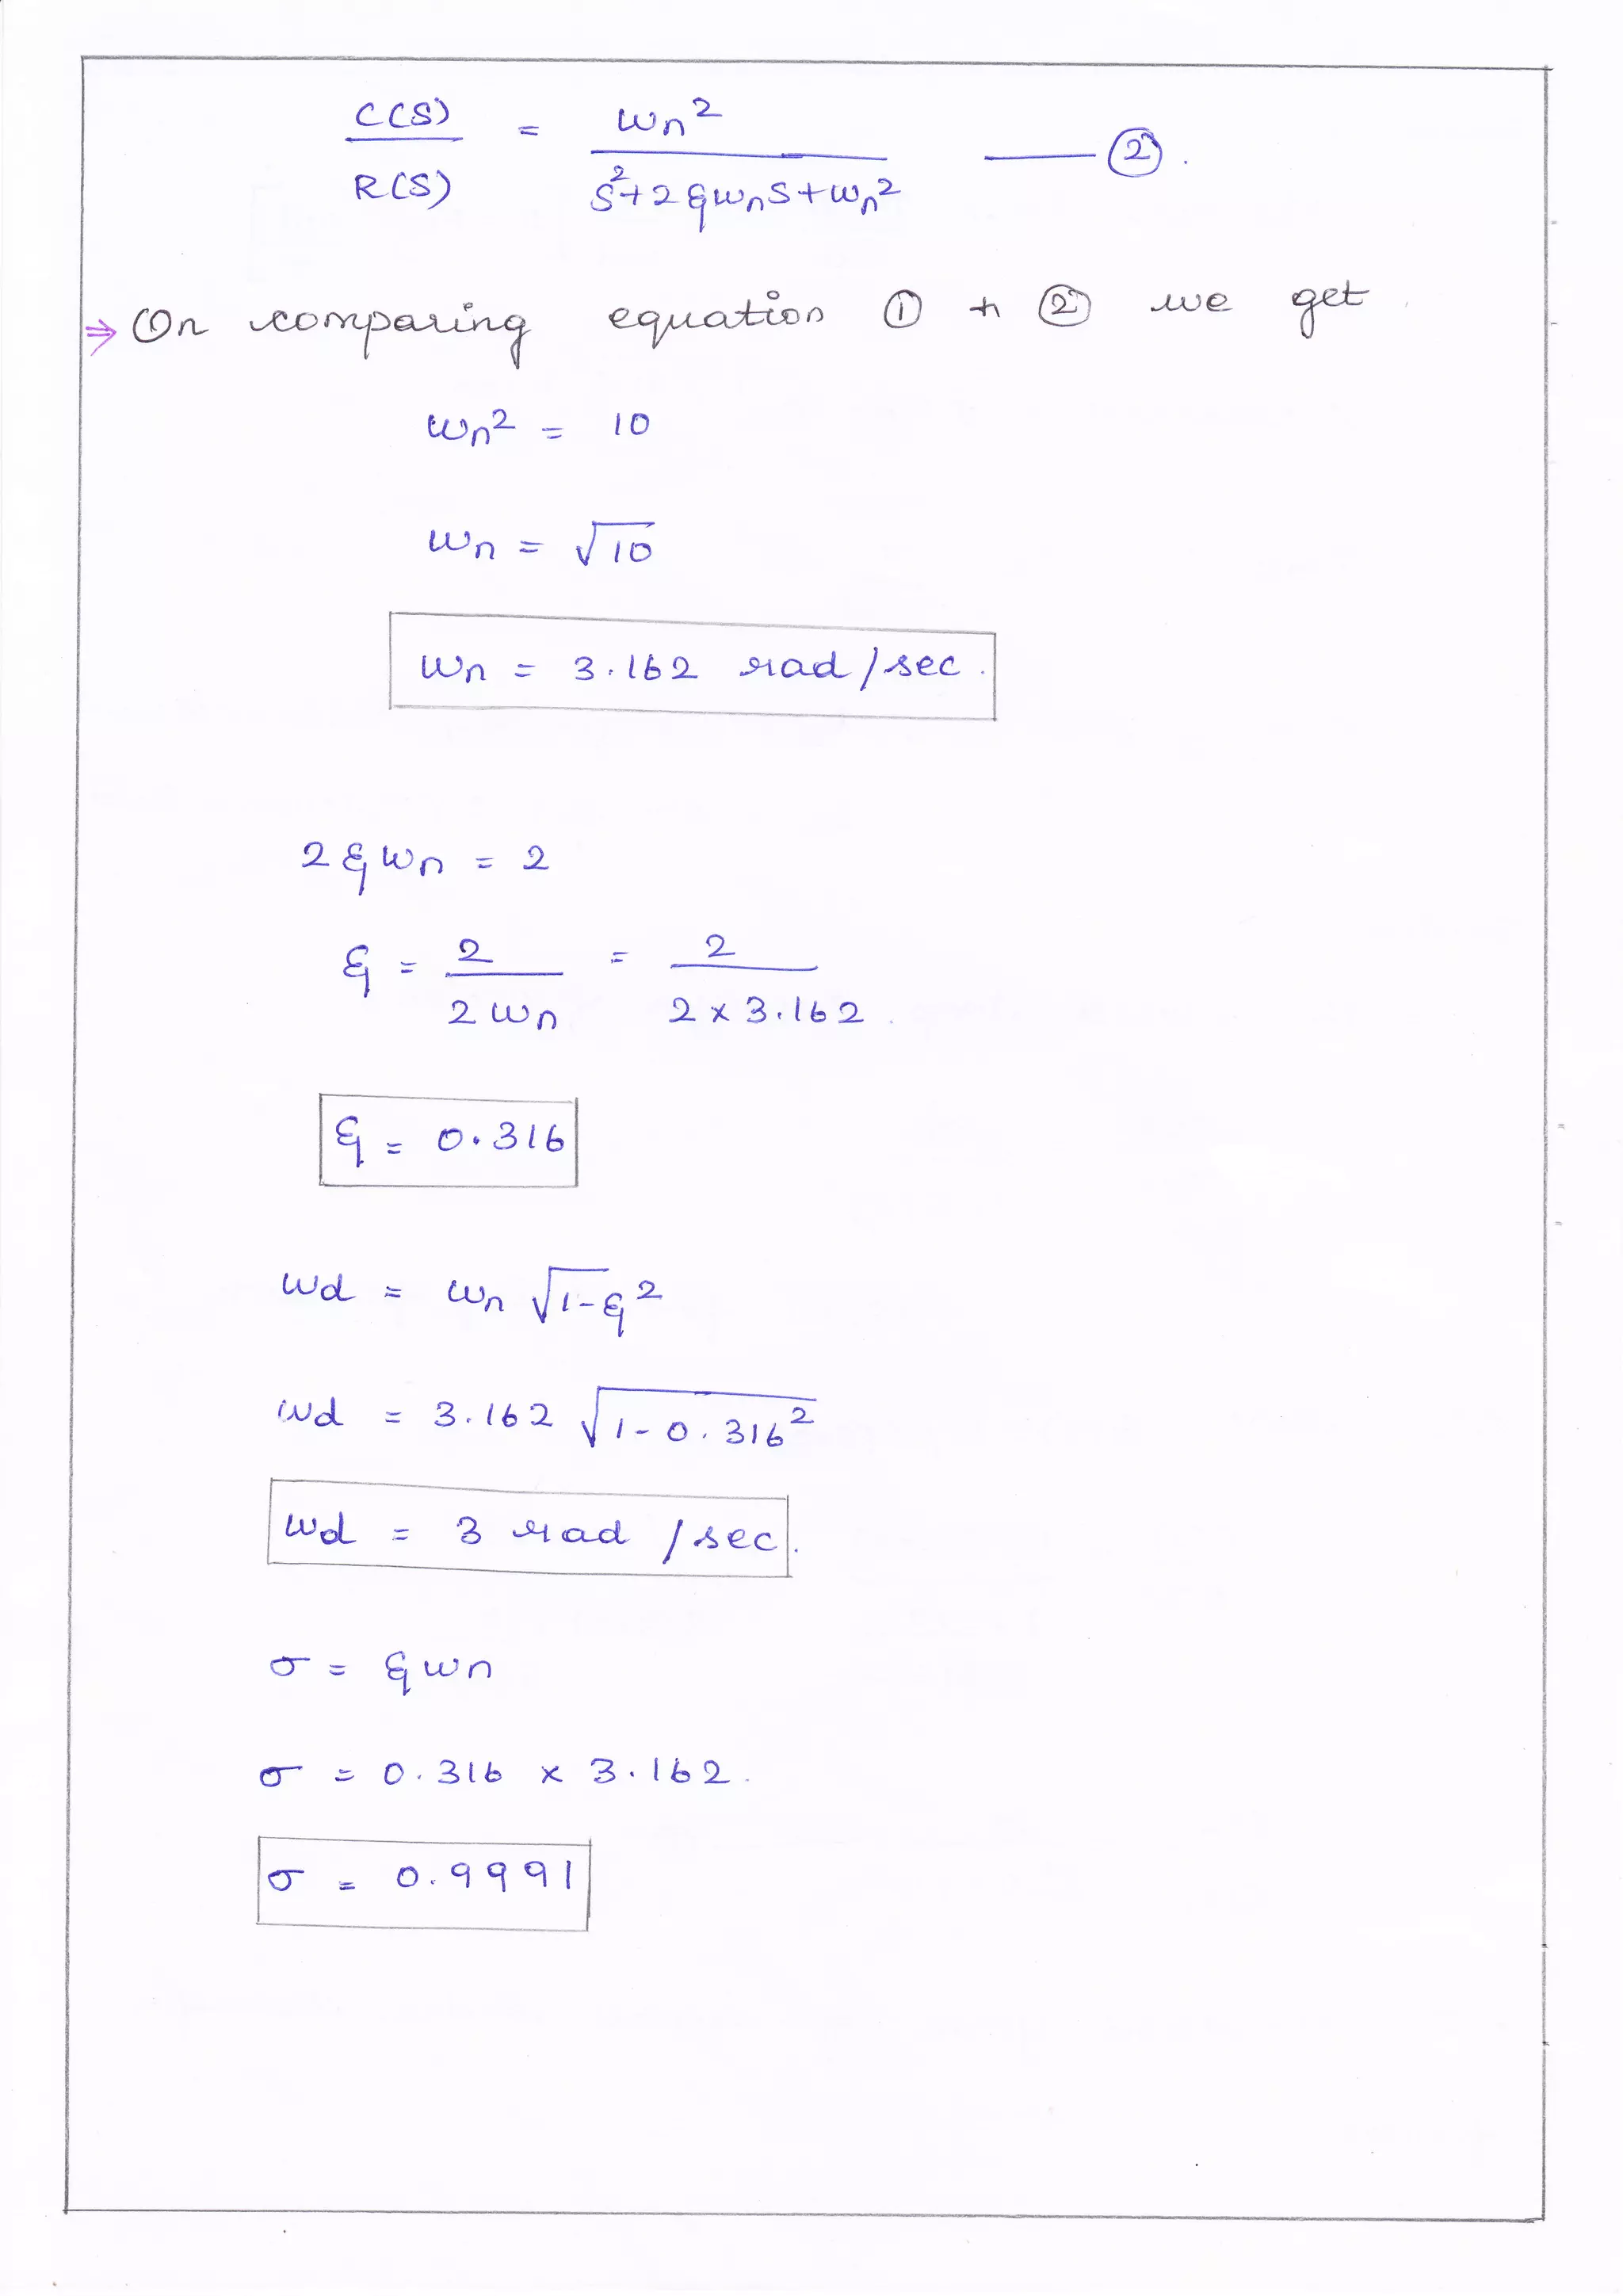 C(S)/R(S) = ωn²/(S²+2ξωnS+ωn²) —— ②.
⇒ On comparing equation ① & ② we get.
ωn² = 10
ωn = √10
ωn = 3.162 rad/sec.
2ξωn = 2
ξ = 2/(2ωn) = 2/(2×3.162).
ξ = 0.316
ωd = ωn √1-ξ²
ωd = 3.162 √1-0.316²
ωd = 3 rad/sec.
σ = ξωn
σ = 0.316 × 3.162.
σ = 0.9991